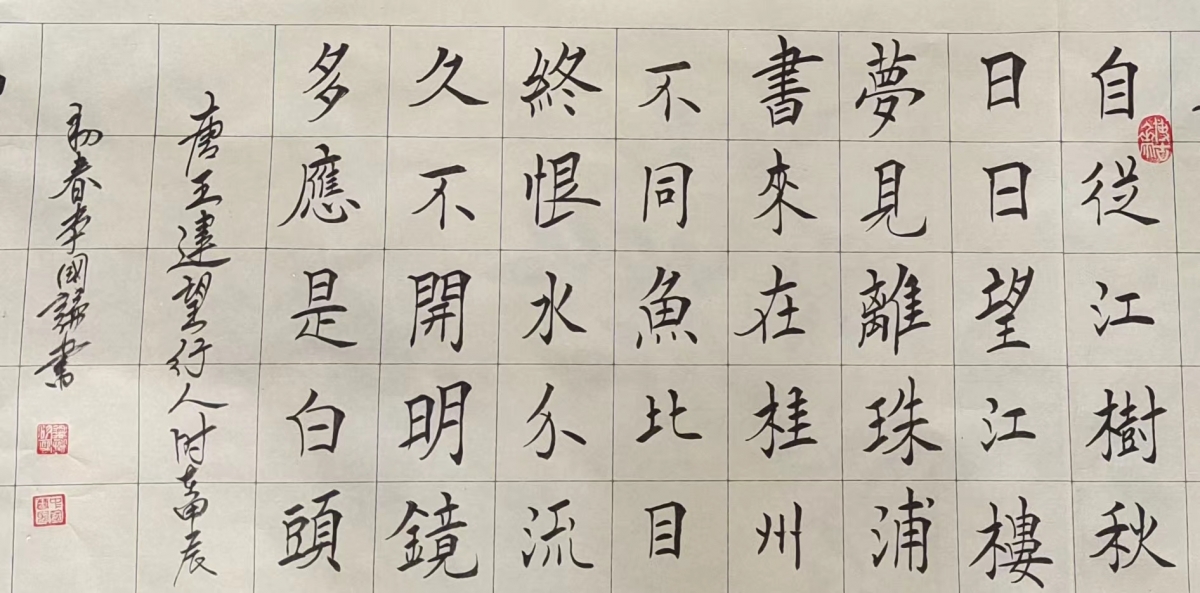 自從江樹秋
日日望江樓
夢見離珠浦
書來在桂州
不同魚比目
終恨水分流
久不開明鏡
多應是白頭
唐王建望行人时在甲辰
初春李國書